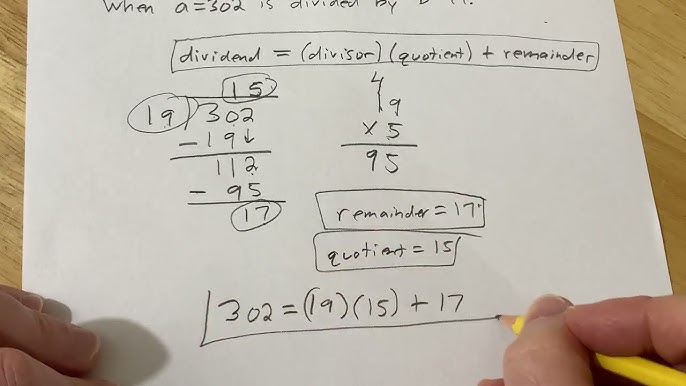 When a=302 is divided by
dividend = (divisor)(quotient) + remainder
15
19 302
- 19↓
112
- 95
17
4
19
× 5
95
remainder = 17
quotient = 15
302 = (19)(15) + 17